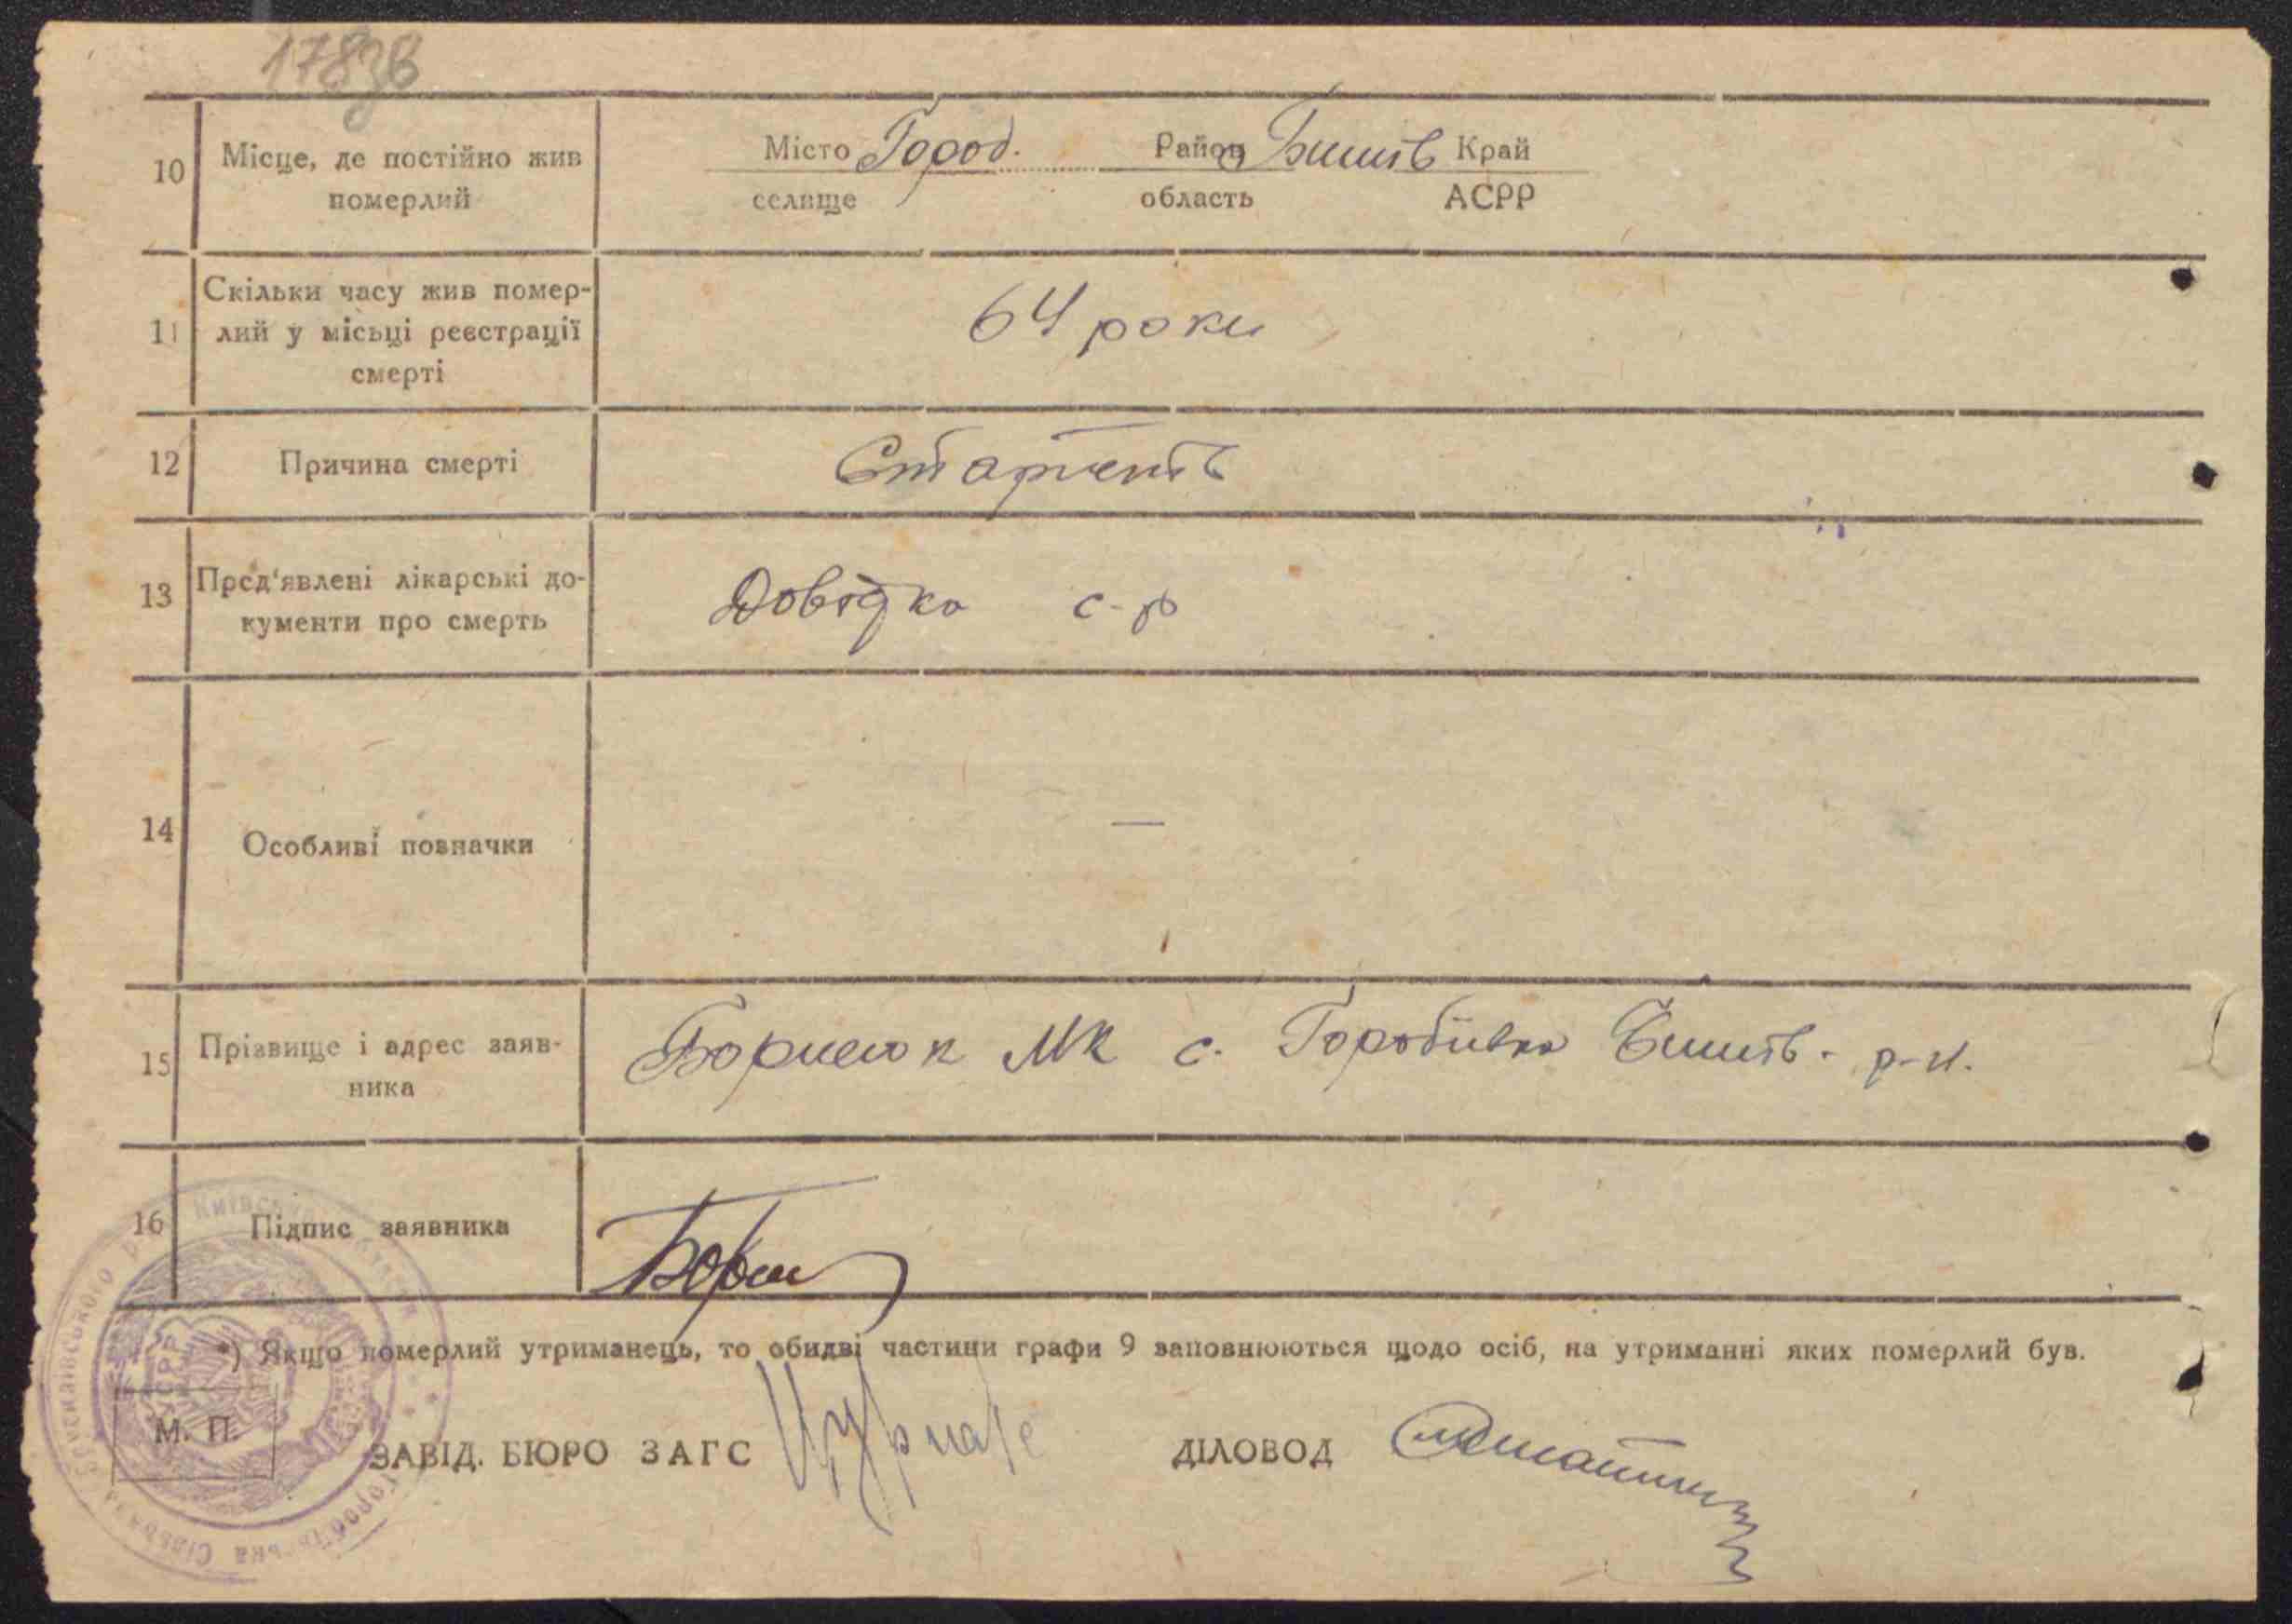 178зв
10 Місце, де постійно жив
померлий
Місто Город. Район Бишів Край
селище область АСРР
11 Скільки часу жив помер-
лий у місьці реєстрації
смерті
64 роки
12 Причина смерті Старість
13 Пред'явлені лікарські до-
кументи про смерть
Довідка с-р
14 Особливі позначки —
15 Прізвище і адрес заяв-
ника
МК с. Горобіівка Бишів. р-н.
16 Підпис заявника
*) Якщо померлий утриманець, то обидві частини графи 9 заповнюються щодо осіб, на утриманні яких померлий був.
М. П.
ЗАВІД. БЮРО ЗАГС ДІЛОВОД
УСРР